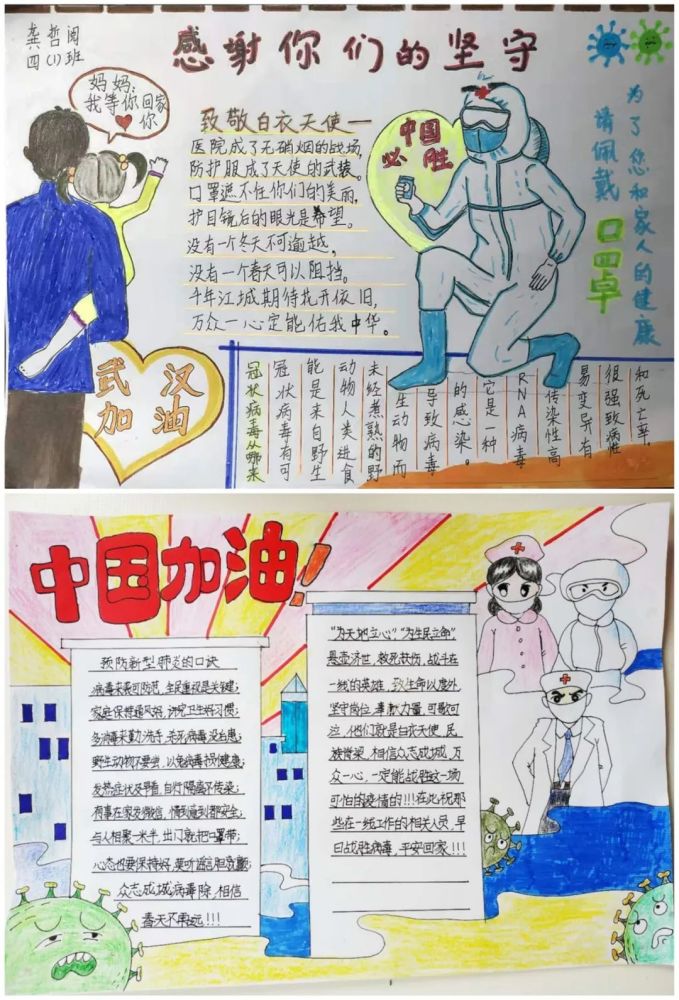 感谢你们的坚守
龚哲阅
四(1)班
妈妈，
我等你回家
你
致敬白衣天使一
医院成了无硝烟的战场，
防护服成了天使的武装。
口罩遮不住你们的美丽，
护目镜后的眼光是希望。
没有一个冬天不可逾越，
没有一个春天可以阻挡。
千年江城期待花开依旧，
万众一心定能佑我中华。
中国
必胜
为了您和家人的健康
请佩戴
口罩
武汉
加油
冠状病毒从哪来
冠状病毒有可
能是来自野生
动物人类进食
未经煮熟的野
生动物而
导致病毒
的感染。
它是一种
RNA病毒
传染性高
易变异有
很强致病性
和死亡率.
中国加油！
预防新型肺炎的口诀
病毒来袭可防范，全民重视是关键；
家庭保持通风好，讲究卫生好习惯；
多消毒来勤洗手，杀死病毒没台患；
野生动物不要尝，以免病毒损健康；
发热症状及早看，自行隔离不传染；
有事在家发微信，情到意到都安全；
与人相聚一米半，出门就把口罩带；
心态也要保持好，莫听谣言胆寒颤；
众志成城病毒除，相信
春天不再远!!!
“为天地立心”“为生民立命”
悬壶济世，救死扶伤，战斗在
一线的英雄，致生命以度外，
坚守岗位，奉献力量，可歌可
泣，他们就是白衣天使，民
族脊梁，相信众志成城，万
众一心，一定能战胜这场
可怕的疫情的!!!在此祝那
些在一线工作的相关人员，早
日战胜病毒，平安回家!!!